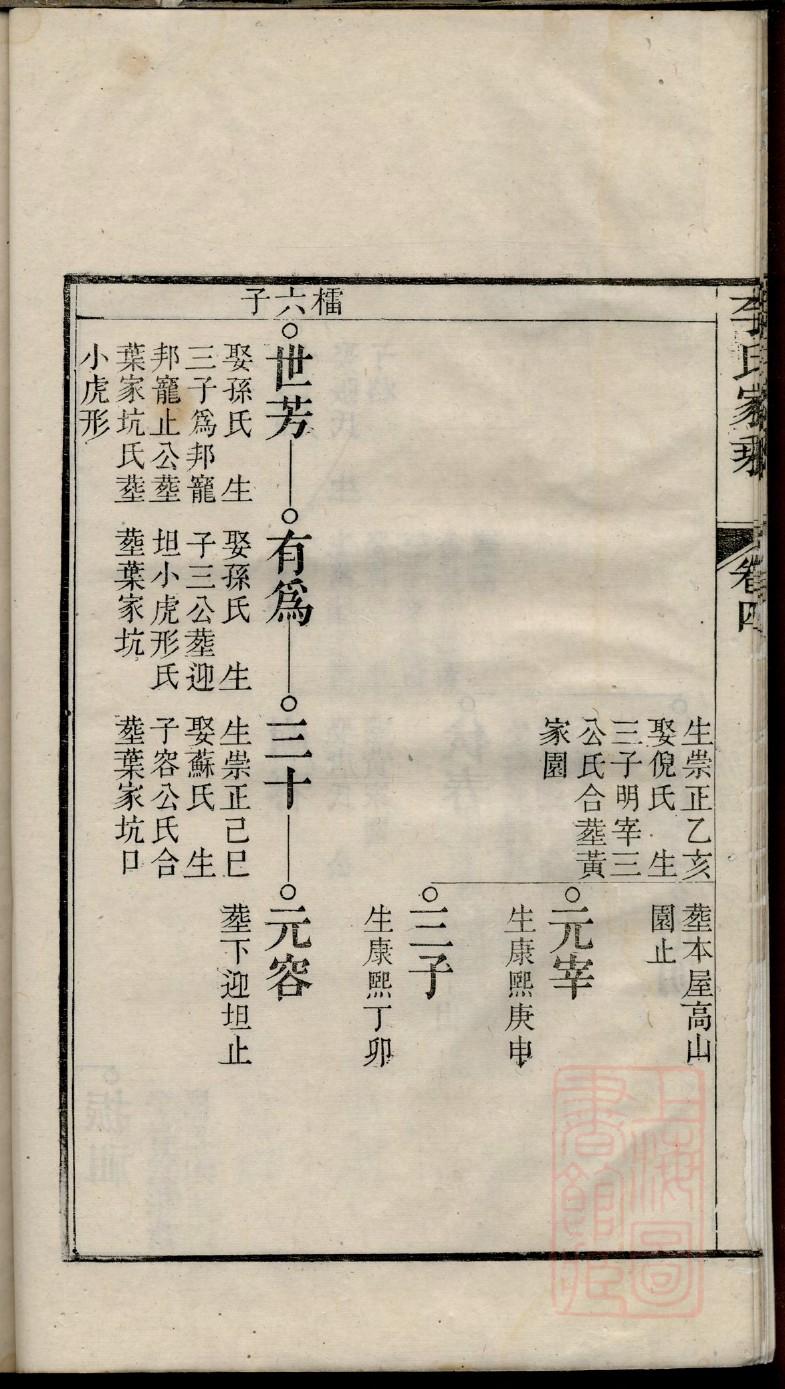 李氏家乘
卷四
生崇正乙亥
娶倪氏　生
三子明宰三
公氏合塟黃
家園
塟本屋高山
園止
元宰
生康熙庚申
三子
生康熙丁卯
檑六子
世芳
娶孫氏　生
三子爲邦寵
邦寵止公塟
葉家坑氏塟
小虎形
有爲
娶孫氏　生
子三公塟迎
坦小虎形氏
塟葉家坑
三十
生崇正己巳
娶蘇氏　生
子容公氏合
塟葉家坑口
元容
塟下迎坦止
上海圖書館藏